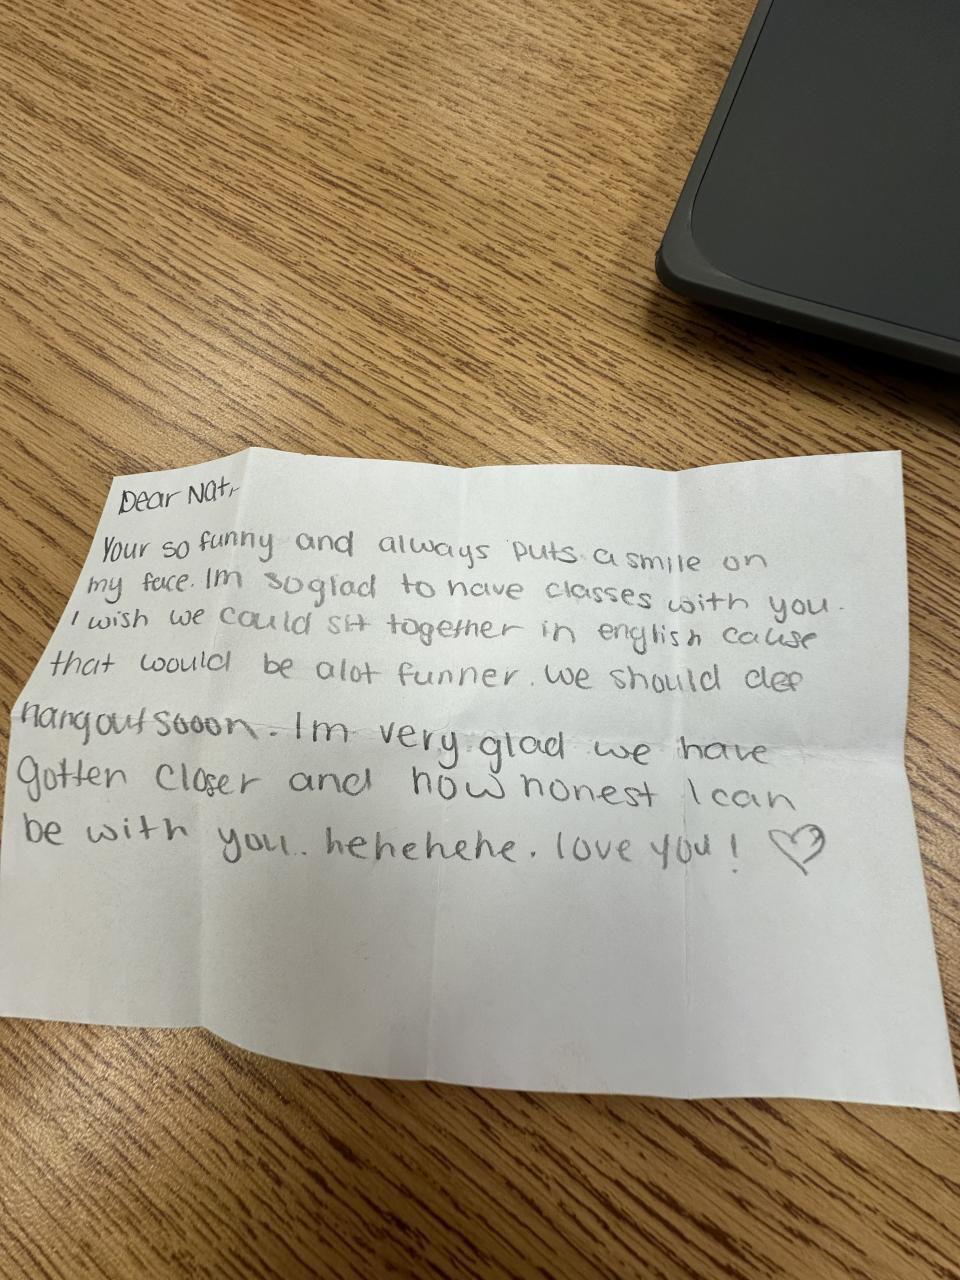 Dear Nat,
Your so funny and always puts a smile on
my face. Im so glad to have classes with you.
I wish we could sit together in english cause
that would be alot funner. we should def
hang out sooon. Im very glad we have
gotten closer and how honest I can
be with you.. hehehehe. love you! ♡